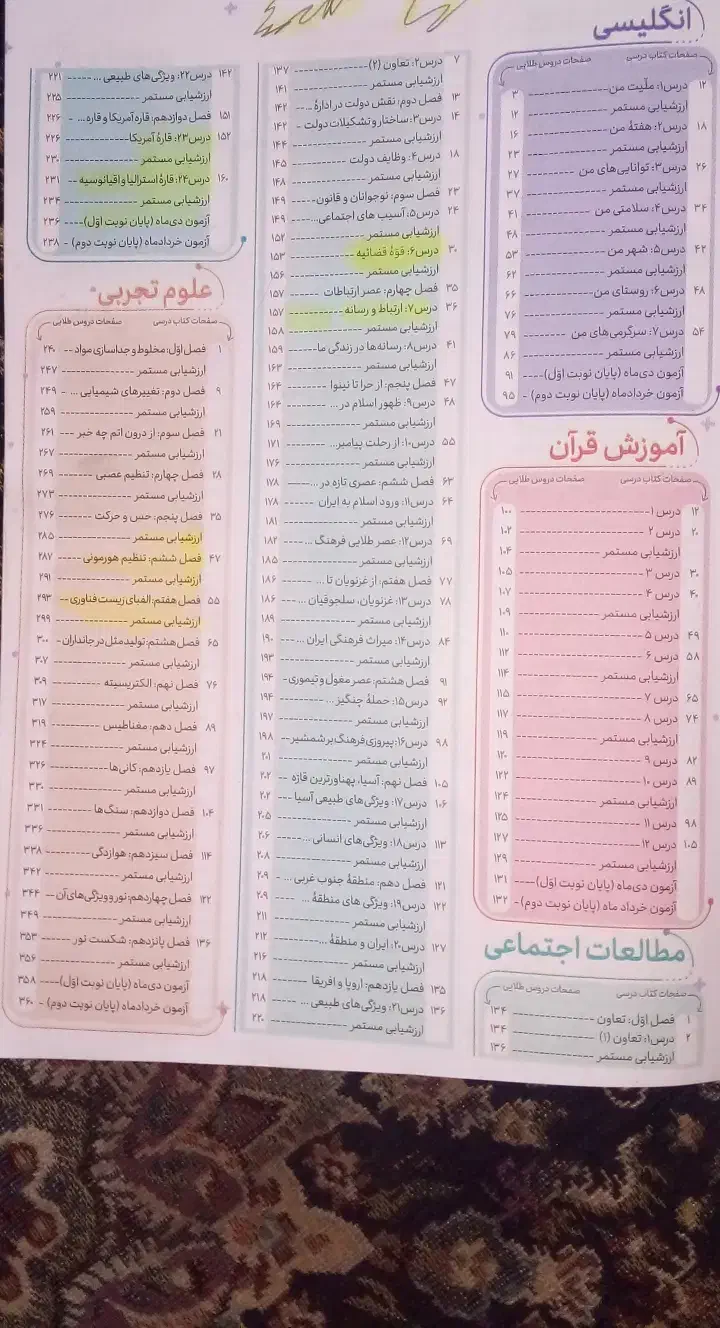 انگلیسی
صفحات کتاب درسی صفحات دروس طلایی
۱۲ درس۱: ملّیت من ۳
ارزشیابی مستمر ۱۲
۱۸ درس۲: هفتهٔ من ۱۶
ارزشیابی مستمر ۲۳
۲۶ درس۳: توانایی‌های من ۲۷
ارزشیابی مستمر ۳۷
۳۴ درس۴: سلامتی من ۴۱
ارزشیابی مستمر ۴۸
۴۲ درس۵: شهر من ۵۳
ارزشیابی مستمر ۶۲
۴۸ درس۶: روستای من ۶۶
ارزشیابی مستمر ۷۶
۵۴ درس۷: سرگرمی‌های من ۷۹
ارزشیابی مستمر ۸۶
آزمون دی‌ماه (پایان نوبت اوّل) ۹۱
آزمون خردادماه (پایان نوبت دوم) ۹۵
آموزش قرآن
صفحات کتاب درسی صفحات دروس طلایی
۱۲ درس ۱ ۱۰۰
۲۰ درس ۲ ۱۰۲
ارزشیابی مستمر ۱۰۴
۳۰ درس ۳ ۱۰۵
۴۰ درس ۴ ۱۰۷
ارزشیابی مستمر ۱۰۹
۴۹ درس ۵ ۱۱۰
۵۸ درس ۶ ۱۱۲
ارزشیابی مستمر ۱۱۴
۶۵ درس ۷ ۱۱۵
۷۴ درس ۸ ۱۱۷
ارزشیابی مستمر ۱۱۹
۸۲ درس ۹ ۱۲۰
۸۹ درس ۱۰ ۱۲۲
ارزشیابی مستمر ۱۲۴
۹۸ درس ۱۱ ۱۲۵
۱۰۵ درس ۱۲ ۱۲۷
ارزشیابی مستمر ۱۲۹
آزمون دی‌ماه (پایان نوبت اوّل) ۱۳۱
آزمون خرداد ماه (پایان نوبت دوم) ۱۳۲
مطالعات اجتماعی
صفحات کتاب درسی صفحات دروس طلایی
۱ فصل اوّل: تعاون ۱۳۴
۲ درس۱: تعاون (۱) ۱۳۴
ارزشیابی مستمر ۱۳۶
۷ درس۲: تعاون (۲) ۱۳۷
ارزشیابی مستمر ۱۴۱
۱۳ فصل دوم: نقش دولت در ادارهٔ ... ۱۴۲
۱۴ درس۳: ساختار و تشکیلات دولت ۱۴۲
ارزشیابی مستمر ۱۴۴
۱۸ درس۴: وظایف دولت ۱۴۵
ارزشیابی مستمر ۱۴۸
۲۳ فصل سوم: نوجوانان و قانون ۱۴۹
۲۴ درس۵: آسیب های اجتماعی... ۱۴۹
ارزشیابی مستمر ۱۵۲
۳۰ درس۶: قوّهٔ قضائیه ۱۵۳
ارزشیابی مستمر ۱۵۶
۳۵ فصل چهارم: عصر ارتباطات ۱۵۷
۳۶ درس۷: ارتباط و رسانه ۱۵۷
ارزشیابی مستمر ۱۵۸
۴۱ درس۸: رسانه‌ها در زندگی ما ۱۵۹
ارزشیابی مستمر ۱۶۳
۴۷ فصل پنجم: از حرا تا نینوا ۱۶۴
۴۸ درس۹: ظهور اسلام در... ۱۶۴
ارزشیابی مستمر ۱۶۹
۵۵ درس۱۰: از رحلت پیامبر... ۱۷۱
ارزشیابی مستمر ۱۷۶
۶۳ فصل ششم: عصری تازه در... ۱۷۸
۶۴ درس۱۱: ورود اسلام به ایران ۱۷۸
ارزشیابی مستمر ۱۸۱
۶۹ درس۱۲: عصر طلایی فرهنگ ... ۱۸۲
ارزشیابی مستمر ۱۸۵
۷۷ فصل هفتم: از غزنویان تا... ۱۸۶
۷۸ درس۱۳: غزنویان، سلجوقیان ... ۱۸۶
ارزشیابی مستمر ۱۸۹
۸۴ درس۱۴: میراث فرهنگی ایران ... ۱۹۰
ارزشیابی مستمر ۱۹۳
۹۱ فصل هشتم: عصر مغول و تیموری ۱۹۴
۹۲ درس۱۵: حملهٔ چنگیز ... ۱۹۴
ارزشیابی مستمر ۱۹۷
۹۸ درس۱۶: پیروزی فرهنگ بر شمشیر ۱۹۸
ارزشیابی مستمر ۲۰۱
۱۰۵ فصل نهم: آسیا، پهناورترین قارّه ۲۰۲
۱۰۶ درس۱۷: ویژگی‌های طبیعی آسیا ۲۰۲
ارزشیابی مستمر ۲۰۵
۱۱۳ درس۱۸: ویژگی‌های انسانی ... ۲۰۶
ارزشیابی مستمر ۲۰۸
۱۲۱ فصل دهم: منطقهٔ جنوب غربی... ۲۰۹
۱۲۲ درس۱۹: ویژگی های منطقهٔ ... ۲۰۹
ارزشیابی مستمر ۲۱۱
۱۲۷ درس۲۰: ایران و منطقهٔ ... ۲۱۲
ارزشیابی مستمر ۲۱۶
۱۳۵ فصل یازدهم: اروپا و افریقا ۲۱۸
۱۳۶ درس۲۱: ویژگی‌های طبیعی ... ۲۱۸
ارزشیابی مستمر ۲۲۰
۱۴۲ درس۲۲: ویژگی‌های طبیعی ... ۲۲۱
ارزشیابی مستمر ۲۲۵
۱۵۱ فصل دوازدهم: قارهٔ آمریکا و قاره... ۲۲۶
۱۵۲ درس۲۳: قارهٔ آمریکا ۲۲۶
ارزشیابی مستمر ۲۳۰
۱۶۰ درس۲۴: قارهٔ استرالیا و اقیانوسیه ۲۳۱
ارزشیابی مستمر ۲۳۴
آزمون دی‌ماه (پایان نوبت اوّل) ۲۳۶
آزمون خردادماه (پایان نوبت دوم) ۲۳۸
علوم تجربی
صفحات کتاب درسی صفحات دروس طلایی
۱ فصل اوّل: مخلوط و جداسازی مواد ۲۴۰
ارزشیابی مستمر ۲۴۷
۹ فصل دوم: تغییرهای شیمیایی ... ۲۴۹
ارزشیابی مستمر ۲۵۹
۲۱ فصل سوم: از درون اتم چه خبر ۲۶۱
ارزشیابی مستمر ۲۶۷
۲۸ فصل چهارم: تنظیم عصبی ۲۶۹
ارزشیابی مستمر ۲۷۳
۳۵ فصل پنجم: حس و حرکت ۲۷۶
ارزشیابی مستمر ۲۸۵
۴۷ فصل ششم: تنظیم هورمونی ۲۸۷
ارزشیابی مستمر ۲۹۱
۵۵ فصل هفتم: الفبای زیست فناوری ۲۹۳
ارزشیابی مستمر ۲۹۹
۶۵ فصل هشتم: تولیدمثل در جانداران ۳۰۰
ارزشیابی مستمر ۳۰۷
۷۶ فصل نهم: الکتریسیته ۳۰۹
ارزشیابی مستمر ۳۱۷
۸۹ فصل دهم: مغناطیس ۳۱۹
ارزشیابی مستمر ۳۲۴
۹۷ فصل یازدهم: کانی‌ها ۳۲۶
ارزشیابی مستمر ۳۳۰
۱۰۴ فصل دوازدهم: سنگ‌ها ۳۳۱
ارزشیابی مستمر ۳۳۶
۱۱۴ فصل سیزدهم: هوازدگی ۳۳۸
ارزشیابی مستمر ۳۴۲
۱۲۲ فصل چهاردهم: نور و ویژگی‌های آن ۳۴۴
ارزشیابی مستمر ۳۴۹
۱۳۶ فصل پانزدهم: شکست نور ۳۵۳
ارزشیابی مستمر ۳۵۶
آزمون دی‌ماه (پایان نوبت اوّل) ۳۵۸
آزمون خردادماه (پایان نوبت دوم) ۳۶۰